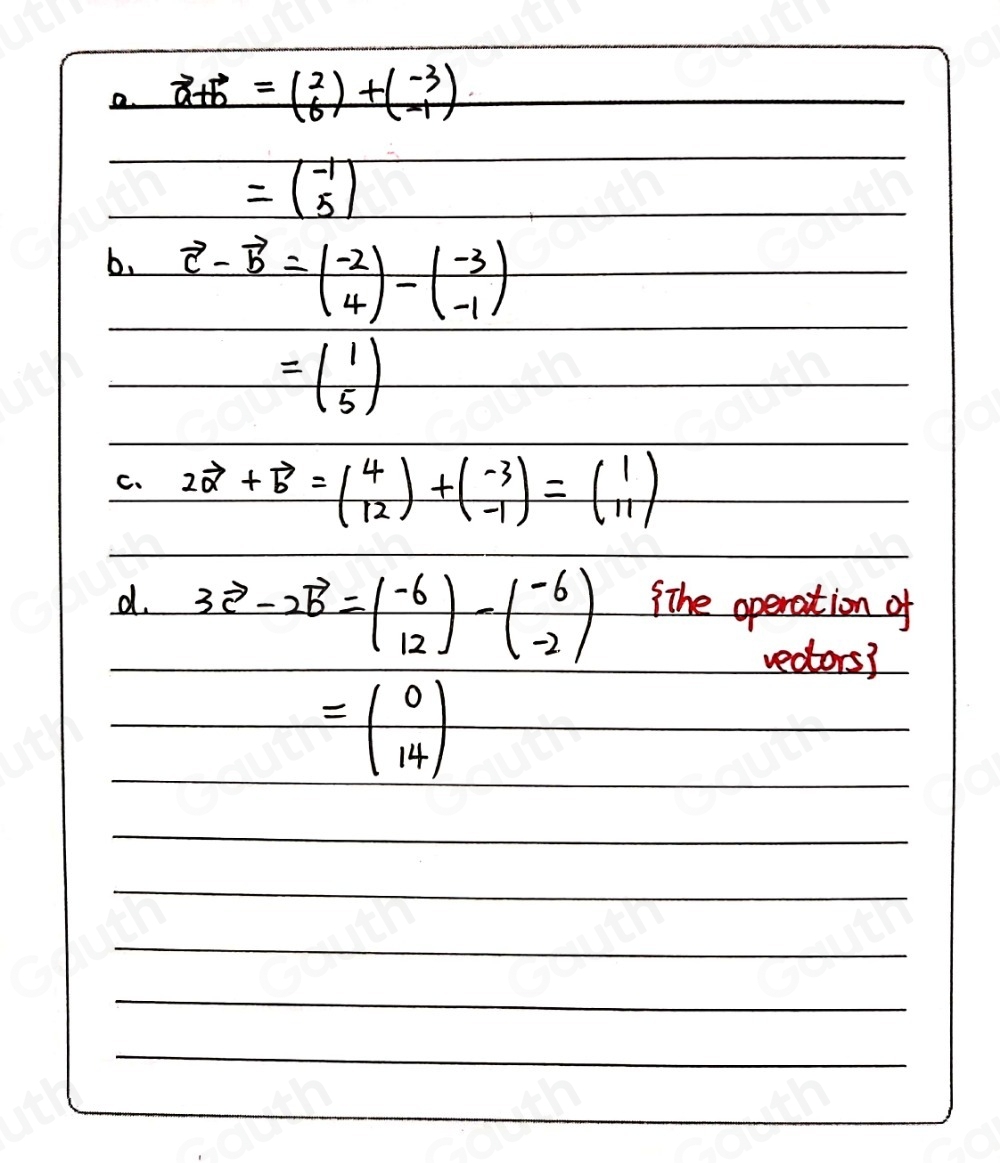 a. \vec{a}+\vec{b} = \begin{pmatrix} 2 \\ 6 \end{pmatrix} + \begin{pmatrix} -3 \\ -1 \end{pmatrix}
= \begin{pmatrix} -1 \\ 5 \end{pmatrix}
b. \vec{c} - \vec{b} = \begin{pmatrix} -2 \\ 4 \end{pmatrix} - \begin{pmatrix} -3 \\ -1 \end{pmatrix}
= \begin{pmatrix} 1 \\ 5 \end{pmatrix}
c. 2\vec{a} + \vec{b} = \begin{pmatrix} 4 \\ 12 \end{pmatrix} + \begin{pmatrix} -3 \\ -1 \end{pmatrix} = \begin{pmatrix} 1 \\ 11 \end{pmatrix}
d. 3\vec{c} - 2\vec{b} = \begin{pmatrix} -6 \\ 12 \end{pmatrix} - \begin{pmatrix} -6 \\ -2 \end{pmatrix} {The operation of
vectors}
= \begin{pmatrix} 0 \\ 14 \end{pmatrix}